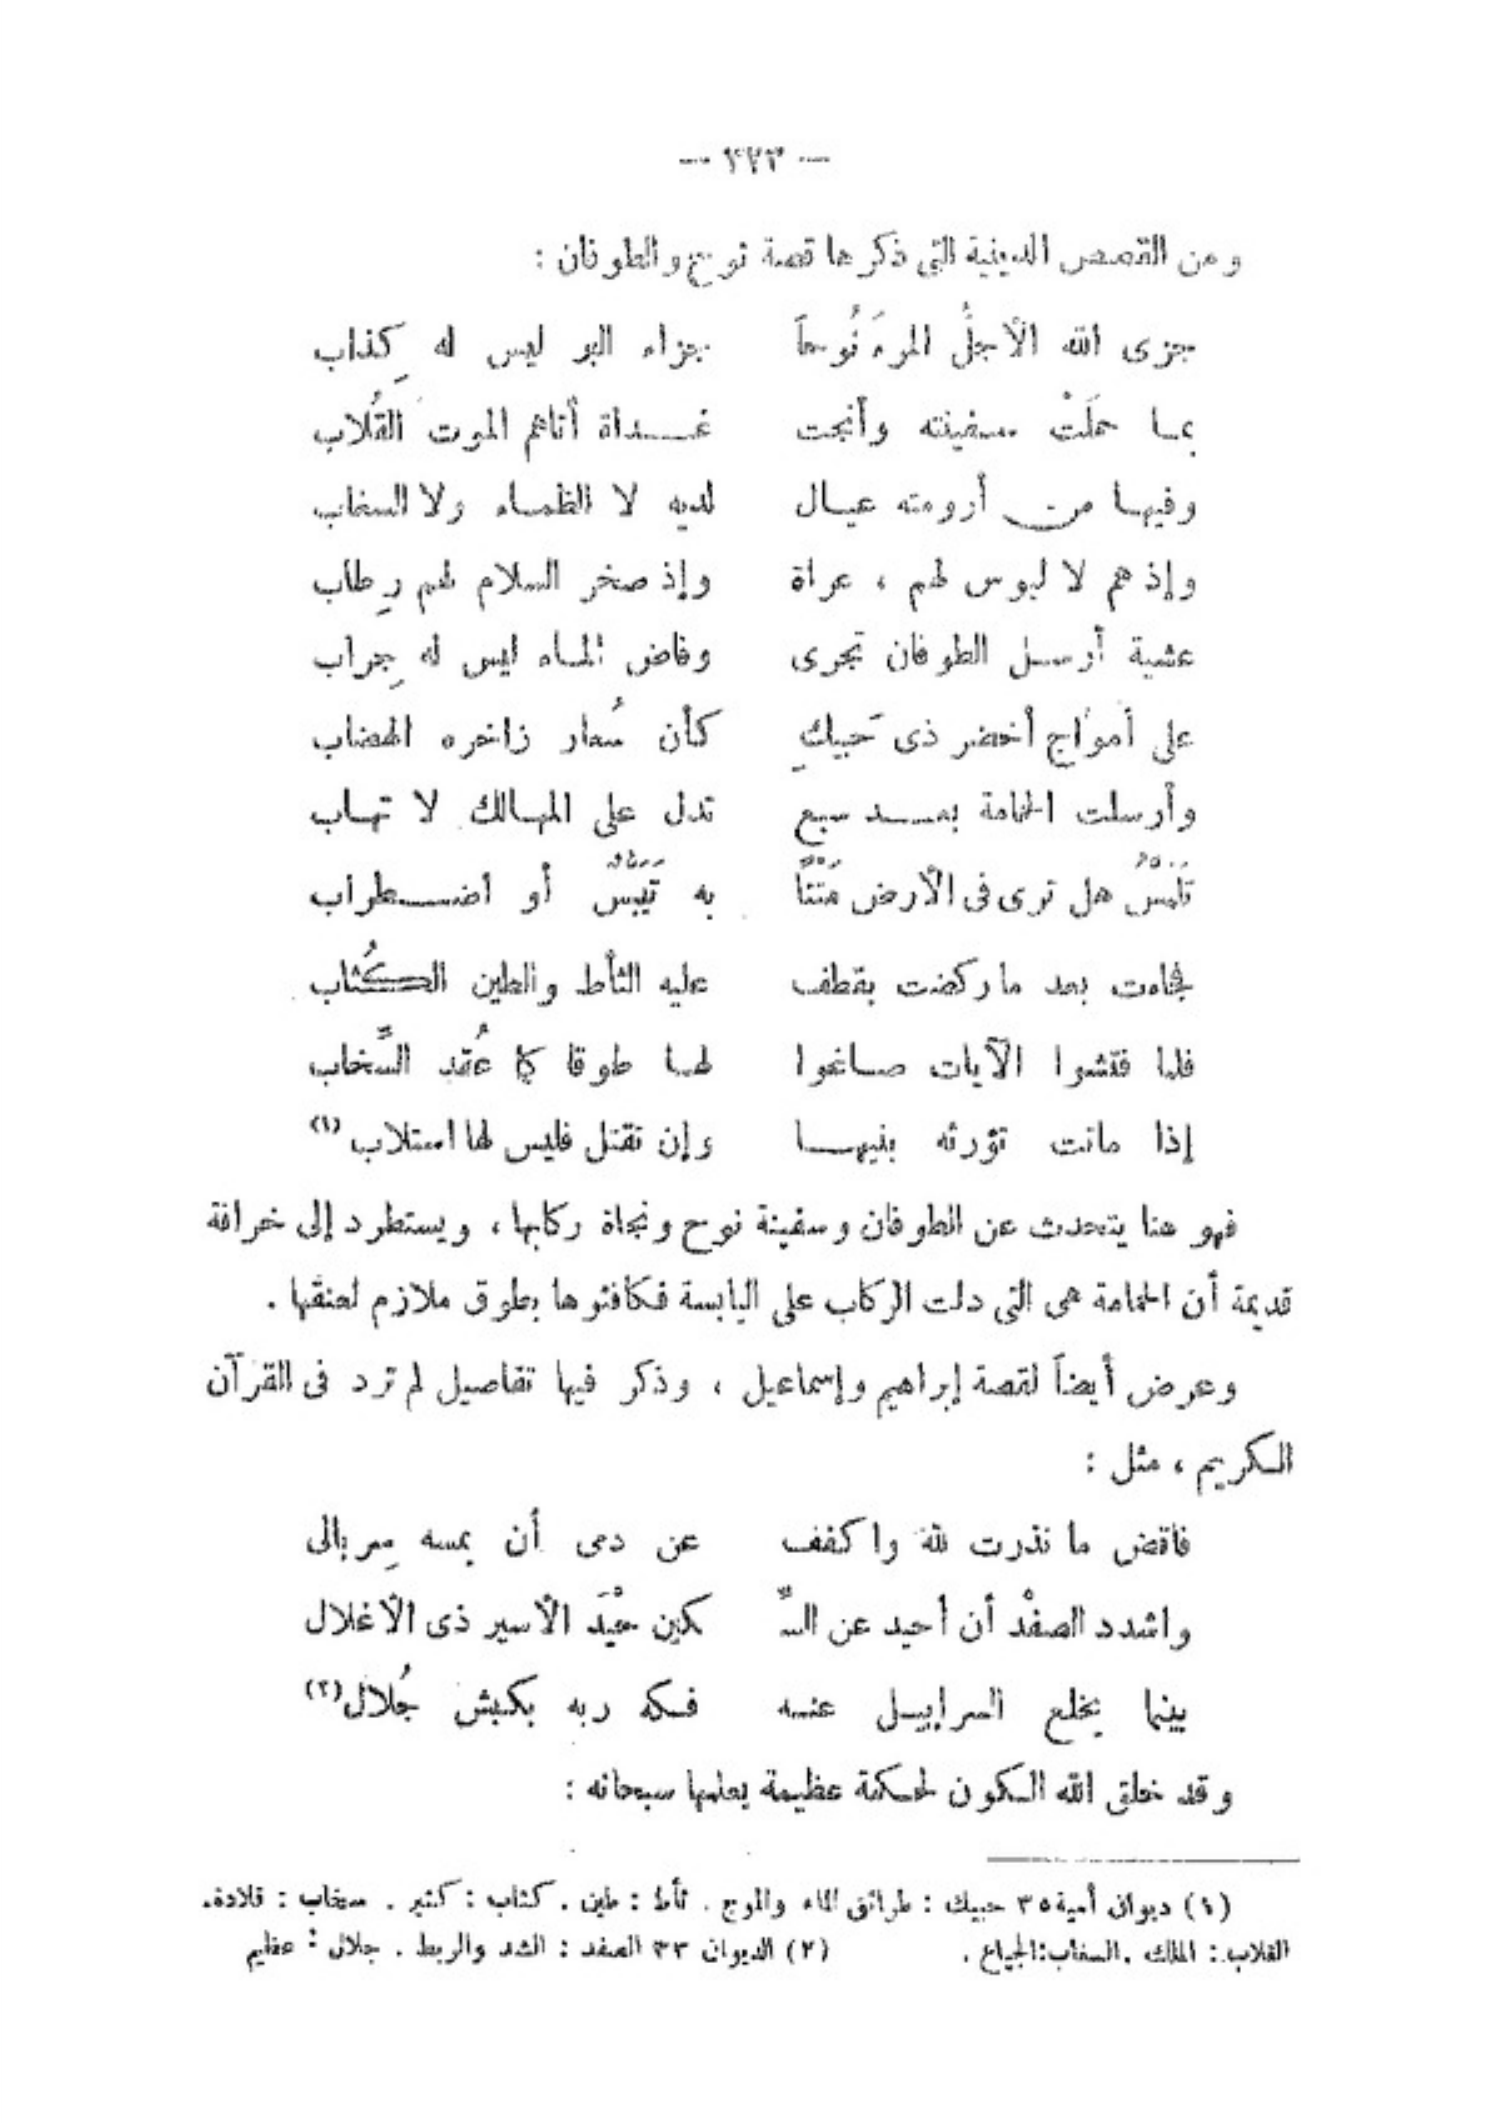 — ٢٢٣ —
ومن القصص الدينية التى ذكرها قصة نوح والطوفان :
جزى الله الأجلُّ المرءَ نُوحاً جزاء البر ليس له كِذاب
بما حمَلَتْ سفينته وأنجت غـــداة أتاهم الموت القُلاب
وفيهـا من أرومته عيـال لديه لا الظمـاء ولا السغاب
وإذ هم لا لبوس لهم ، عراة وإذ صخر السلام لهم رِطاب
عشية أرسـل الطوفان تجرى وفاض المـاء ليس له جِراب
على أمواج أخضر ذى حَبيكِ كأن سُعار زاخره الهضاب
وأرسلت الحمامة بعـــد سبع تدل على المهـالك لا تهـاب
تَلَمَّسُ هل ترى فى الأرض مَتْنًا به تَيَبُّسٌ أو اضـــطراب
فجاءت بعد ما ركضت بقطف عليه الثأط والطين الكُثاب
فلما فتشوا الآيات صـاغوا لهـا طوقا كما عُقد السِّخاب
إذا ماتت تؤرثه بنيهـــا وإن تقتل فليس لها استلاب (١)
فهو هنا يتحدث عن الطوفان وسفينة نوح ونجاة ركابها ، ويستطرد إلى خرافة
قديمة أن الحمامة هى التى دلت الركاب على اليابسة فكافئوها بطوق ملازم لعنقها .
وعرض أيضاً لقصة إبراهيم وإسماعيل ، وذكر فيها تفاصيل لم ترد فى القرآن
الكريم ، مثل :
فاقض ما نذرت لله واكفف عن دمى أن يمسه سِربالى
واشدد الصفْد أن أحيد عن السِّـ ـكين حيْدَ الأسير ذى الأغلال
بينما يخلع السرابيـل عنـه فكه ربه بكبش جُلال(٢)
وقد خلق الله الكون لحكمة عظيمة يعلمها سبحانه :
(١) ديوان أمية ٣٥ حبيك : طرائق الماء والموج . ثأط : طين . كثاب : كثير . سخاب : قلادة.
القلاب : الهلك . السغاب : الجياع . (٢) الديوان ٣٣ الصفد : الشد والربط . جلال : عظيم